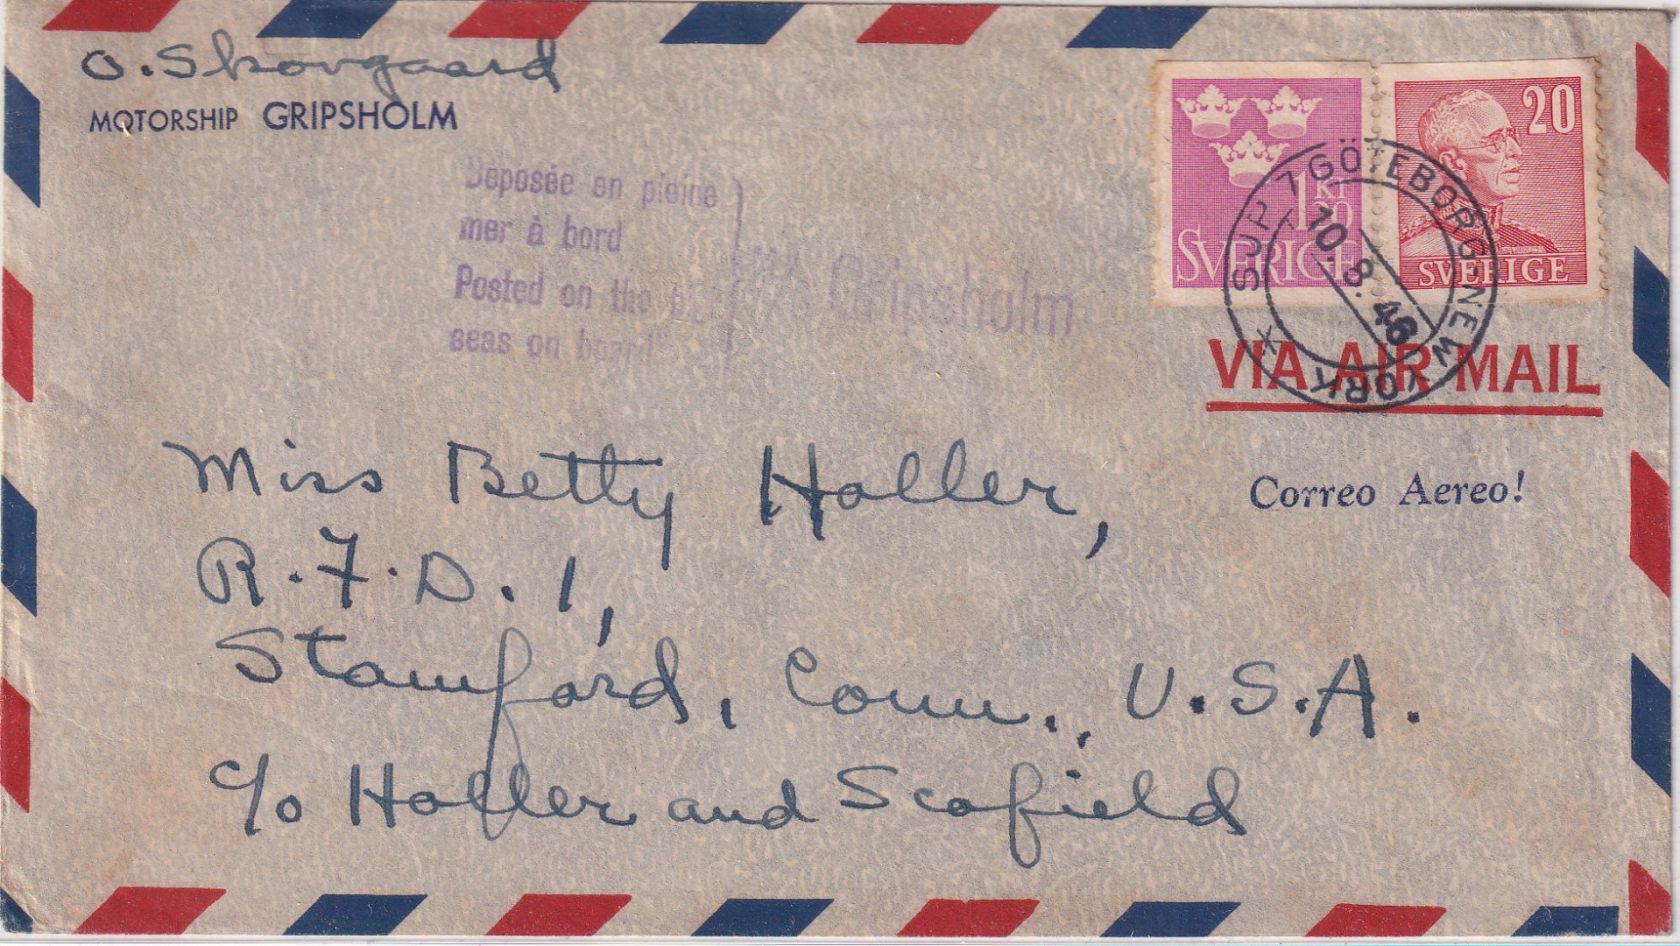 O. Skovgaard
MOTORSHIP GRIPSHOLM
Déposée en pleine
mer à bord
Posted on the
seas on board
Gripsholm
1 KR
20
SVERIGE
20
SVERIGE
SUP 1 GÖTEBORG-NEW YORK
10. 8. 46
VIA AIR MAIL
Correo Aereo!
Miss Betty Holler,
R.F.D. 1,
Stamford, Conn., U.S.A.
c/o Holler and Scofield